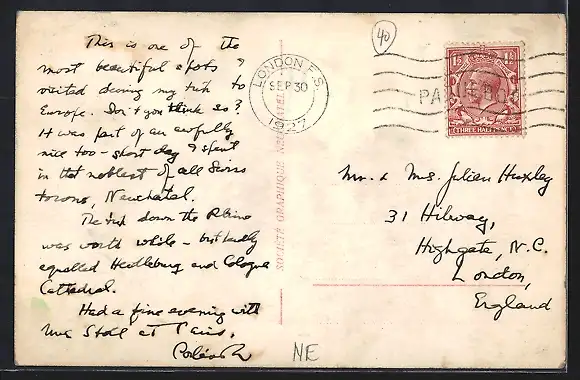 This is one of the
most beautiful spots I
visited during my trip to
Europe. Don't you think so?
It was part of an awfully
nice too-short day I spent
in that noblest of all Swiss
towns, Neuchatel.
The trip down the Rhine
was worth while - but hardly
equalled Heidleburg and Cologne
Cathedral.
Had a fine evening with
Stoll at Paris.
SOCIÉTÉ GRAPHIQUE NEUCHATEL
LONDON F.S.
SEP 30
1927
40
1½
1½
THREE HALFPENCE
Mr. & Mrs. Julian Huxley
31 Hillway,
Highgate, N.C.
London,
England
NE